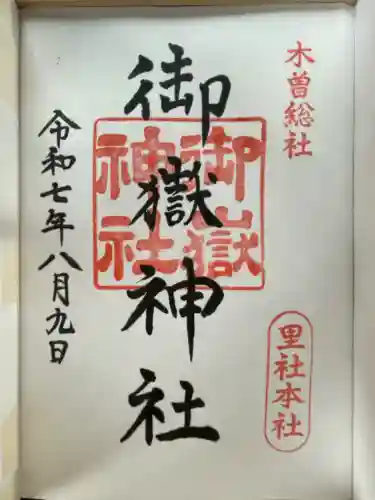 木曽総社
里社本社
御嶽神社
御嶽神社
令和七年八月九日